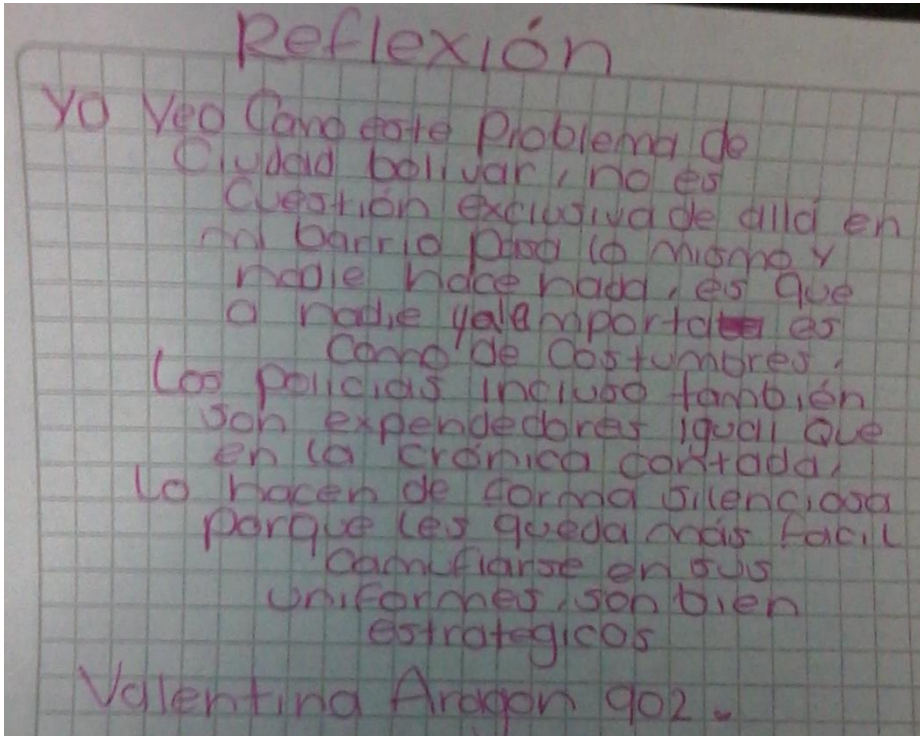 Reflexión
Yo veo Como este Problema de
Ciudad bolivar, no es
Cuestión exclusiva de allá en
mi barrio pasa lo mismo y
nadie hace nada, es que
a nadie ya le importa es
como de costumbres.
Los policias incluso también
son expendedores igual que
en la crónica contada,
lo hacen de forma silenciosa
porque les queda más facil
camuflarse en sus
uniformes, son bien
estrategicos
Valentina Aragon 902.